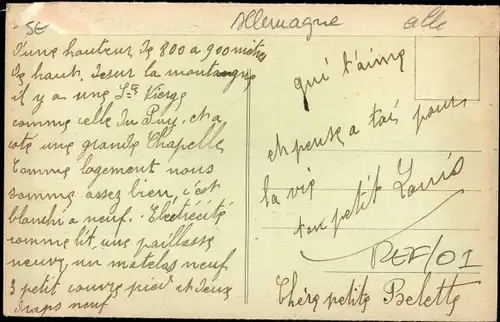 SE
Allemagne
alle
D'une hauteur de 800 a 900 mètres
de haut, desur la montangne
il y a une Ste Vierge
comme celle du Puy, et a
coté une grande Chapelle
Comme logement nous
somme assez bien, c'est
blanchi a neuf. Electricité
comme lit, une paillasse
neuve, un matelas neuf
3 petit couvre pied et deux
draps neuf
qui t'aime
et pense a toi pour
la vie
ton petit Louis
REF/01
Chère petite Belette